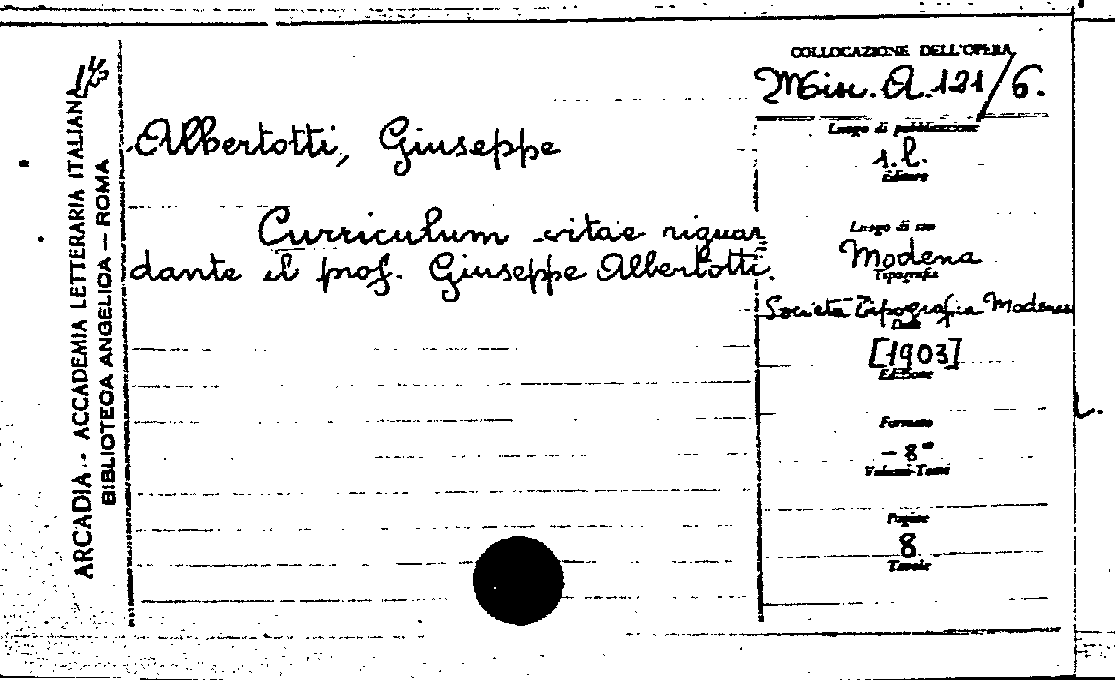 ARCADIA - ACCADEMIA LETTERARIA ITALIANA
BIBLIOTECA ANGELICA — ROMA
COLLOCAZIONE DELL'OPERA
Misc. A. 121/6.
Albertotti, Giuseppe
Curriculum vitae riguar
dante il prof. Giuseppe Albertotti.
Luogo di pubblicazione
s.l.
Editore
Luogo di
Modena
Tipografia
Società Tipografia Modenes
Data
[1903]
Edizione
Formato
- 8°
Volumi-Tomi
Pagine
8
Tavole